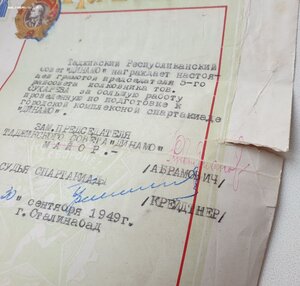 Таджикский Республиканский
совет "ДИНАМО" награждает настоя-
щей грамотой председателя 5-го
райсовета полковника тов.
СУХАРЕВА за большую работу
проведенную по подготовке к
городской комплексной спартакиаде
"ДИНАМО".
ЗАМ.ПРЕДСЕДАТЕЛЯ
ТАДЖИКСКОГО СОВЕТА "ДИНАМО"
МАЙОР.-
/АБРАМОВИЧ/
СУДЬЯ СПАРТАКИАДЫ
/КРЕЙДТНЕР/
30" сентября 1949г.
г.Сталинабад